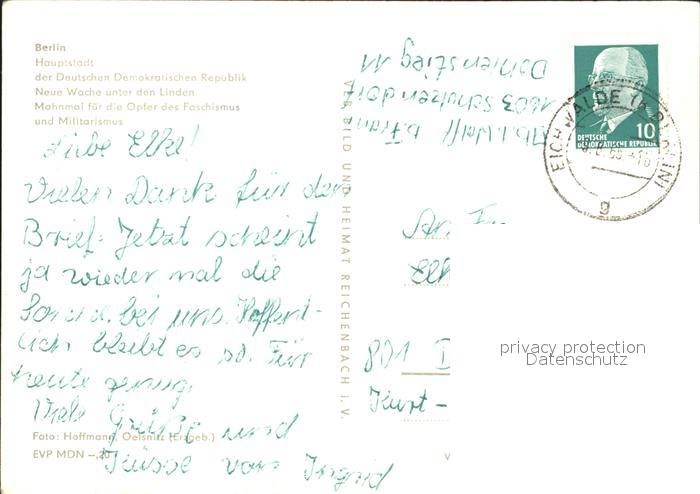 Berlin
Hauptstadt
der Deutschen Demokratischen Republik
Neue Wache unter den Linden
Mahnmal für die Opfer des Faschismus
und Militarismus
Liebe Elke!
Vielen Dank für den
Brief. Jetzt scheint
ja wieder mal die
Sonne bei uns. Hoffent-
lich bleibt es so. Für
heute genug.
Viele Grüße und
Küsse von Ingrid
Foto: Hoffmann, Oelsnitz (Erzgeb.)
EVP MDN –,20
VEB BILD UND HEIMAT REICHENBACH I. V.
Abs. I. Wolff b. Franz
1603 Schulzendorf
Dahlienstieg 11
DEUTSCHE
DEMOKRATISCHE REPUBLIK
10
EICHWALDE (KR
g
An
Elk
801
Kurt-
privacy protection
Datenschutz